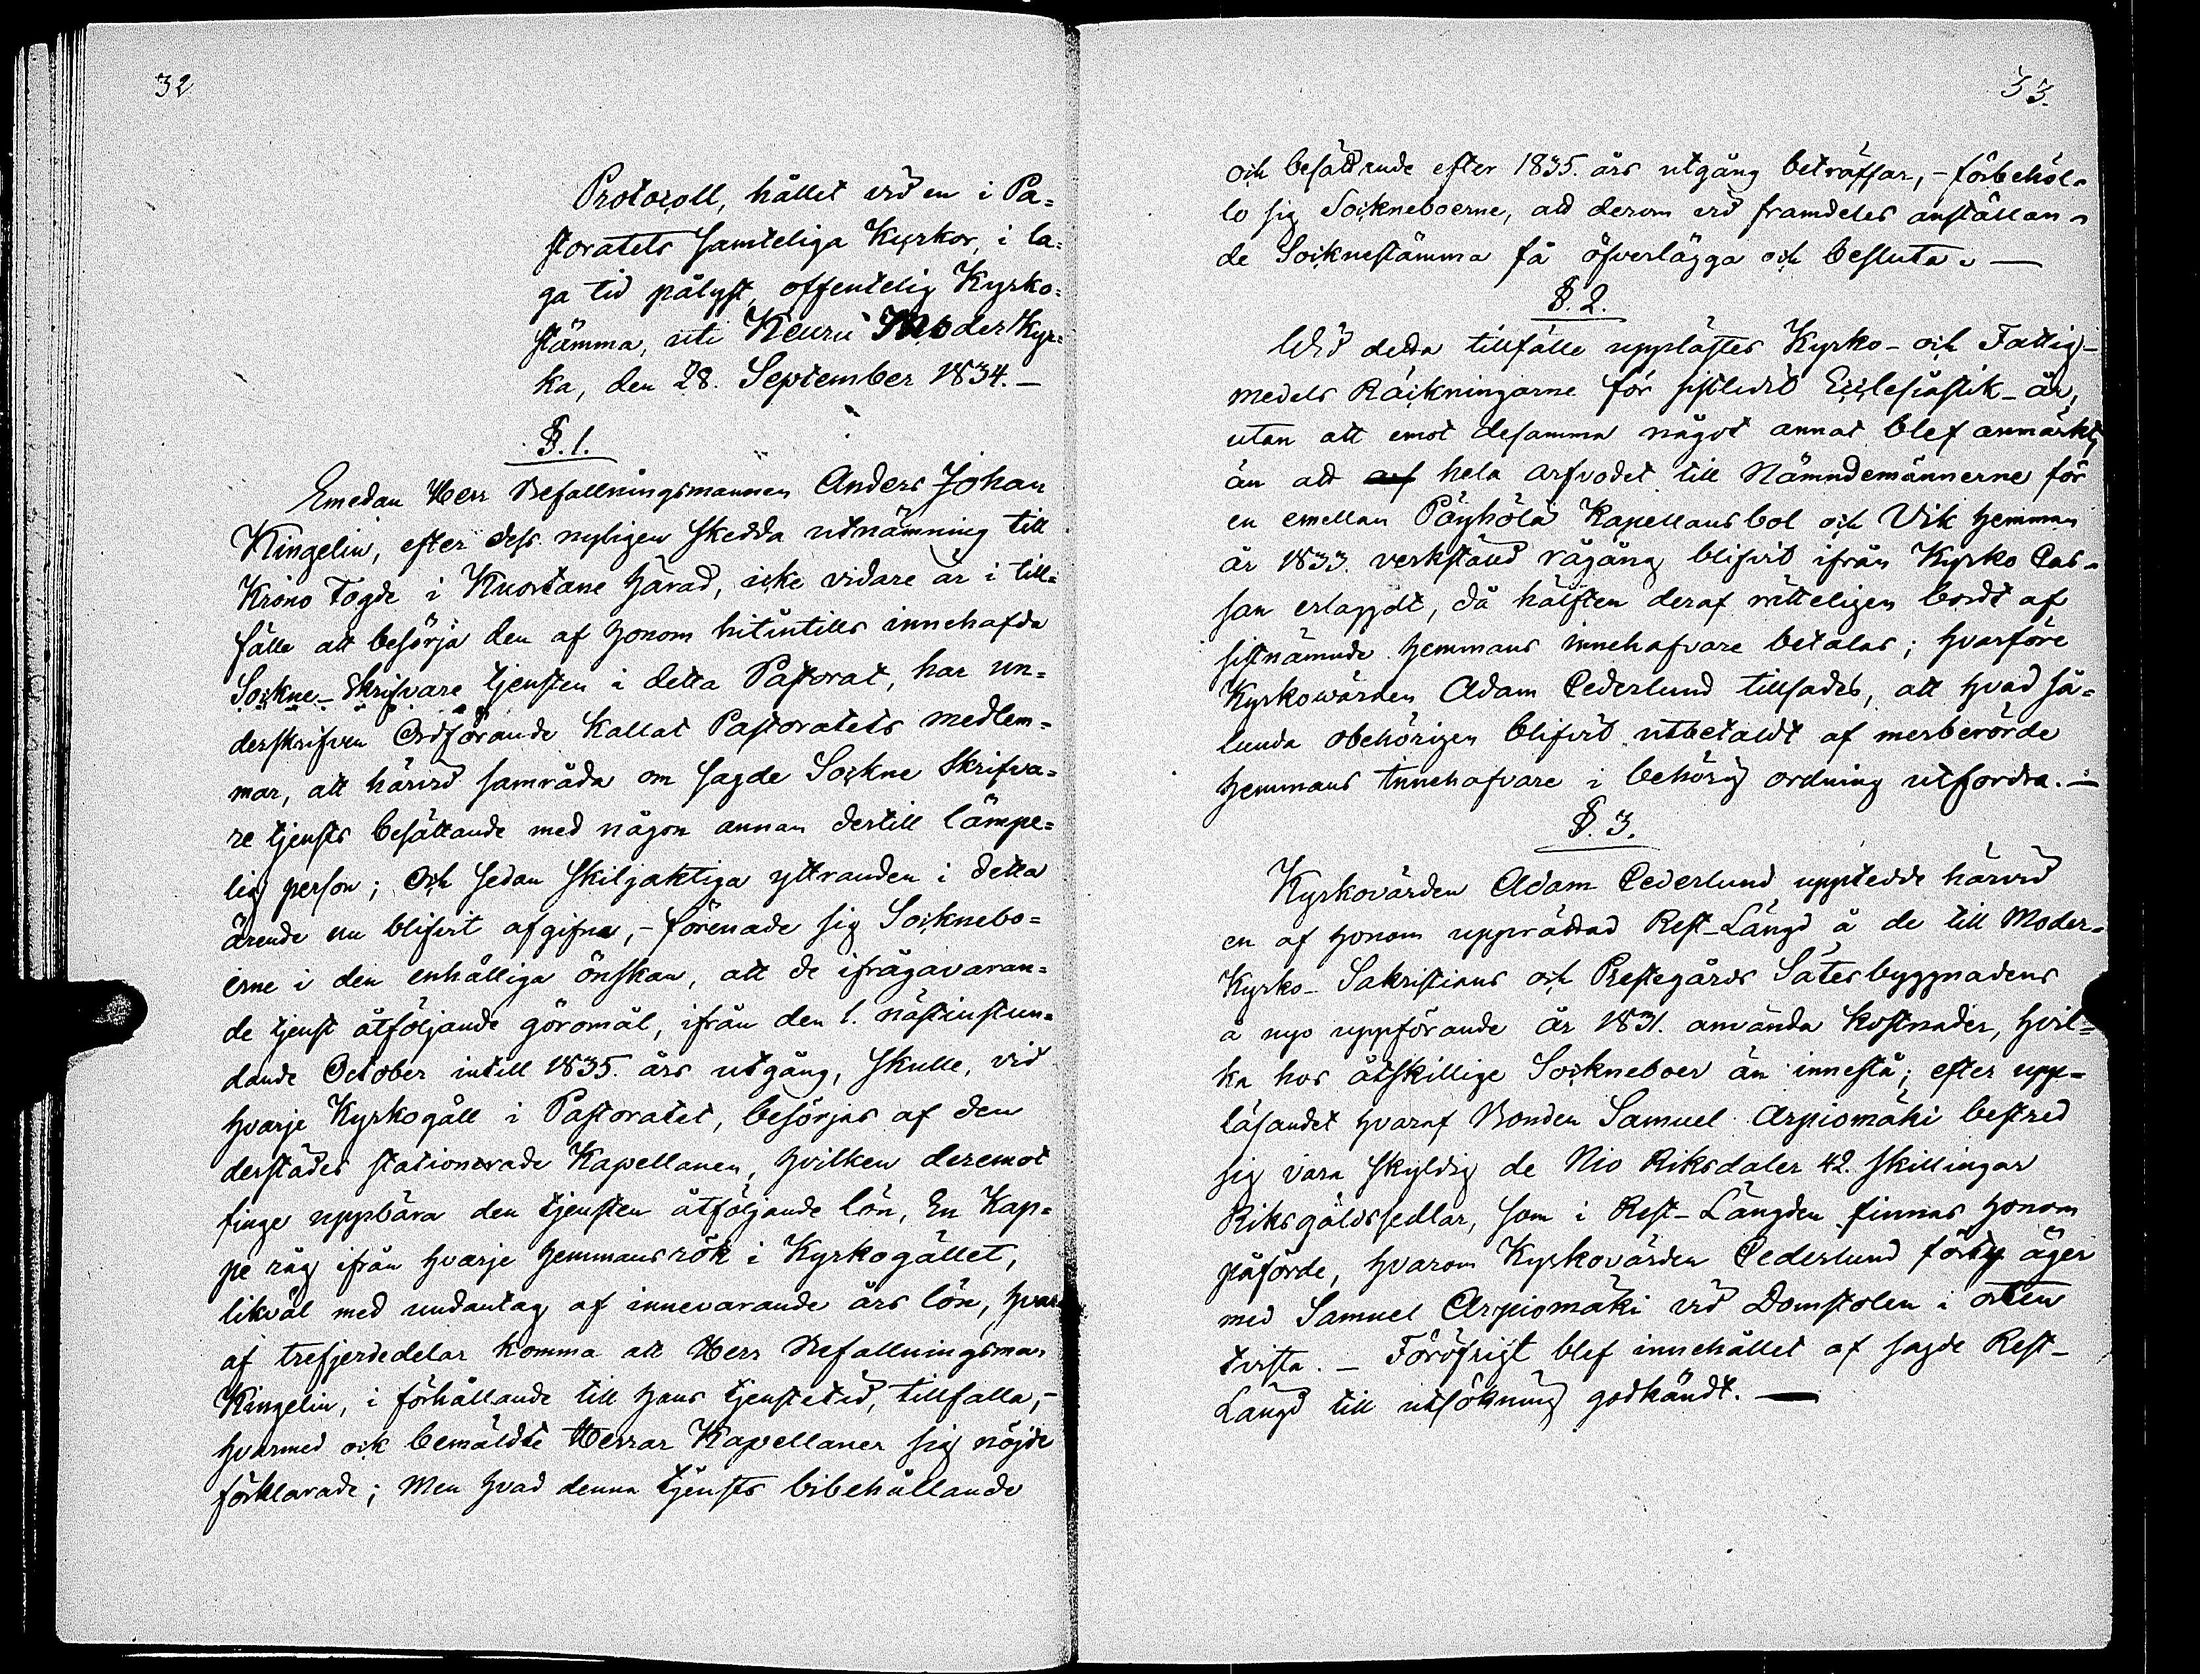 32
Protocoll, hållet vid en i Pa=
storatets samteliga Kyrkor, i la=
ga tid pålyst, offentelig Kyrko=
stämma, uti Keuru Moder Kyr=
ka, den 28. September 1834. –
§. 1.
Emedan Herr Befallningsmannen Anders Johan
Kingelin, efter dess nyligen skedda utnämning till
Krono Fogde i Kuortane härad, icke vidare är i till=
fälle att besörja den af honom hitintills innehafda
Sockne-Skrifvare tjensten i detta Pastorat, har un=
derskrifven Ordförande kallat Pastoratets medlem=
mar, att härvid samråda om sagde Sockne Skrifva=
re tjensts besättande med någon annan dertill lämpe=
lig person; Och sedan skiljaktiga yttranden i detta
ärende nu blifvit afgifna, – förenade sig Socknebo=
erne i den enhälliga önskan, att de ifrågavaran=
de tjenst åtföljande göromål, ifrån den 1. nästinstun=
dande October intill 1835. års utgång, skulle, vid
hvarje Kyrkogäll i Pastoratet, besörjas af den
derstädes stationerade Kapellanen, hvilken deremot
finge uppbära den tjensten åtföljande lön, En Kap=
pe råg ifrån hvarje hemmansrök i Kyrkogället,
likväl med undantag af innevarande års lön, hvar
af trefjerdedelar komma att Herr Befallningsman
Kingelin, i förhållande till hans tjenstetid, tillfalla, –
hvarmed ock bemäldte Herrar Kapellaner sig nöjde
förklarade; Men hvad denna tjensts bibehållande
33.
och besättande efter 1835. års utgång beträffar, – förbehöl=
lo sig Sockneboerne, att derom vid framdeles anställan=
de Socknestämma få öfverlägga och besluta. —
§. 2.
Wid detta tillfälle upplästes Kyrko- och Fattig-
medels Räckningarne för sistledit Ecclesiastik-år,
utan att emot desamma något annat blef anmärkt,
än att af hela arfvodet till Nämndemännerne för
en emellan Pöyhölä Kapellansbol och Vik hemman
år 1833. verkstäld rågång blifvit ifrån Kyrko Cas=
san erlaggdt, då hälften deraf rätteligen bordt af
sistnämnde hemmans innehafvare betalas; hvarföre
Kyrkowärden Adam Cederlund tillsades, att hvad så=
lunda obehörigen blifvit utbetaldt af merberörde
hemmans Innehafvare i behörig ordning utfordra. –
§. 3.
Kyrkovärden Adam Cederlund upptedde härvid
en af honom upprättad Rest-Längd å de till Moder=
Kyrko- Sakristians och Prestegårds Sätesbyggnadens
å nyo uppförande år 1831. använda kostnader, hvil=
ka hos åtskillige Sockneboer än innestå; efter upp=
läsandet hvaraf Bonden Samuel Arpiomäki bestred
sig vara skyldig de Nio Riksdaler 42. skillingar
Riksgäldssedlar, som i Rest-Längden finnas honom
påförde, hvarom Kyrkovärden Cederlund förty äger
med Samuel Arpiomäki vid Domstolen i orten
tvista. – Föröfrigt blef innehållet af sagde Rest-
Längd till utsökning godkändt. —